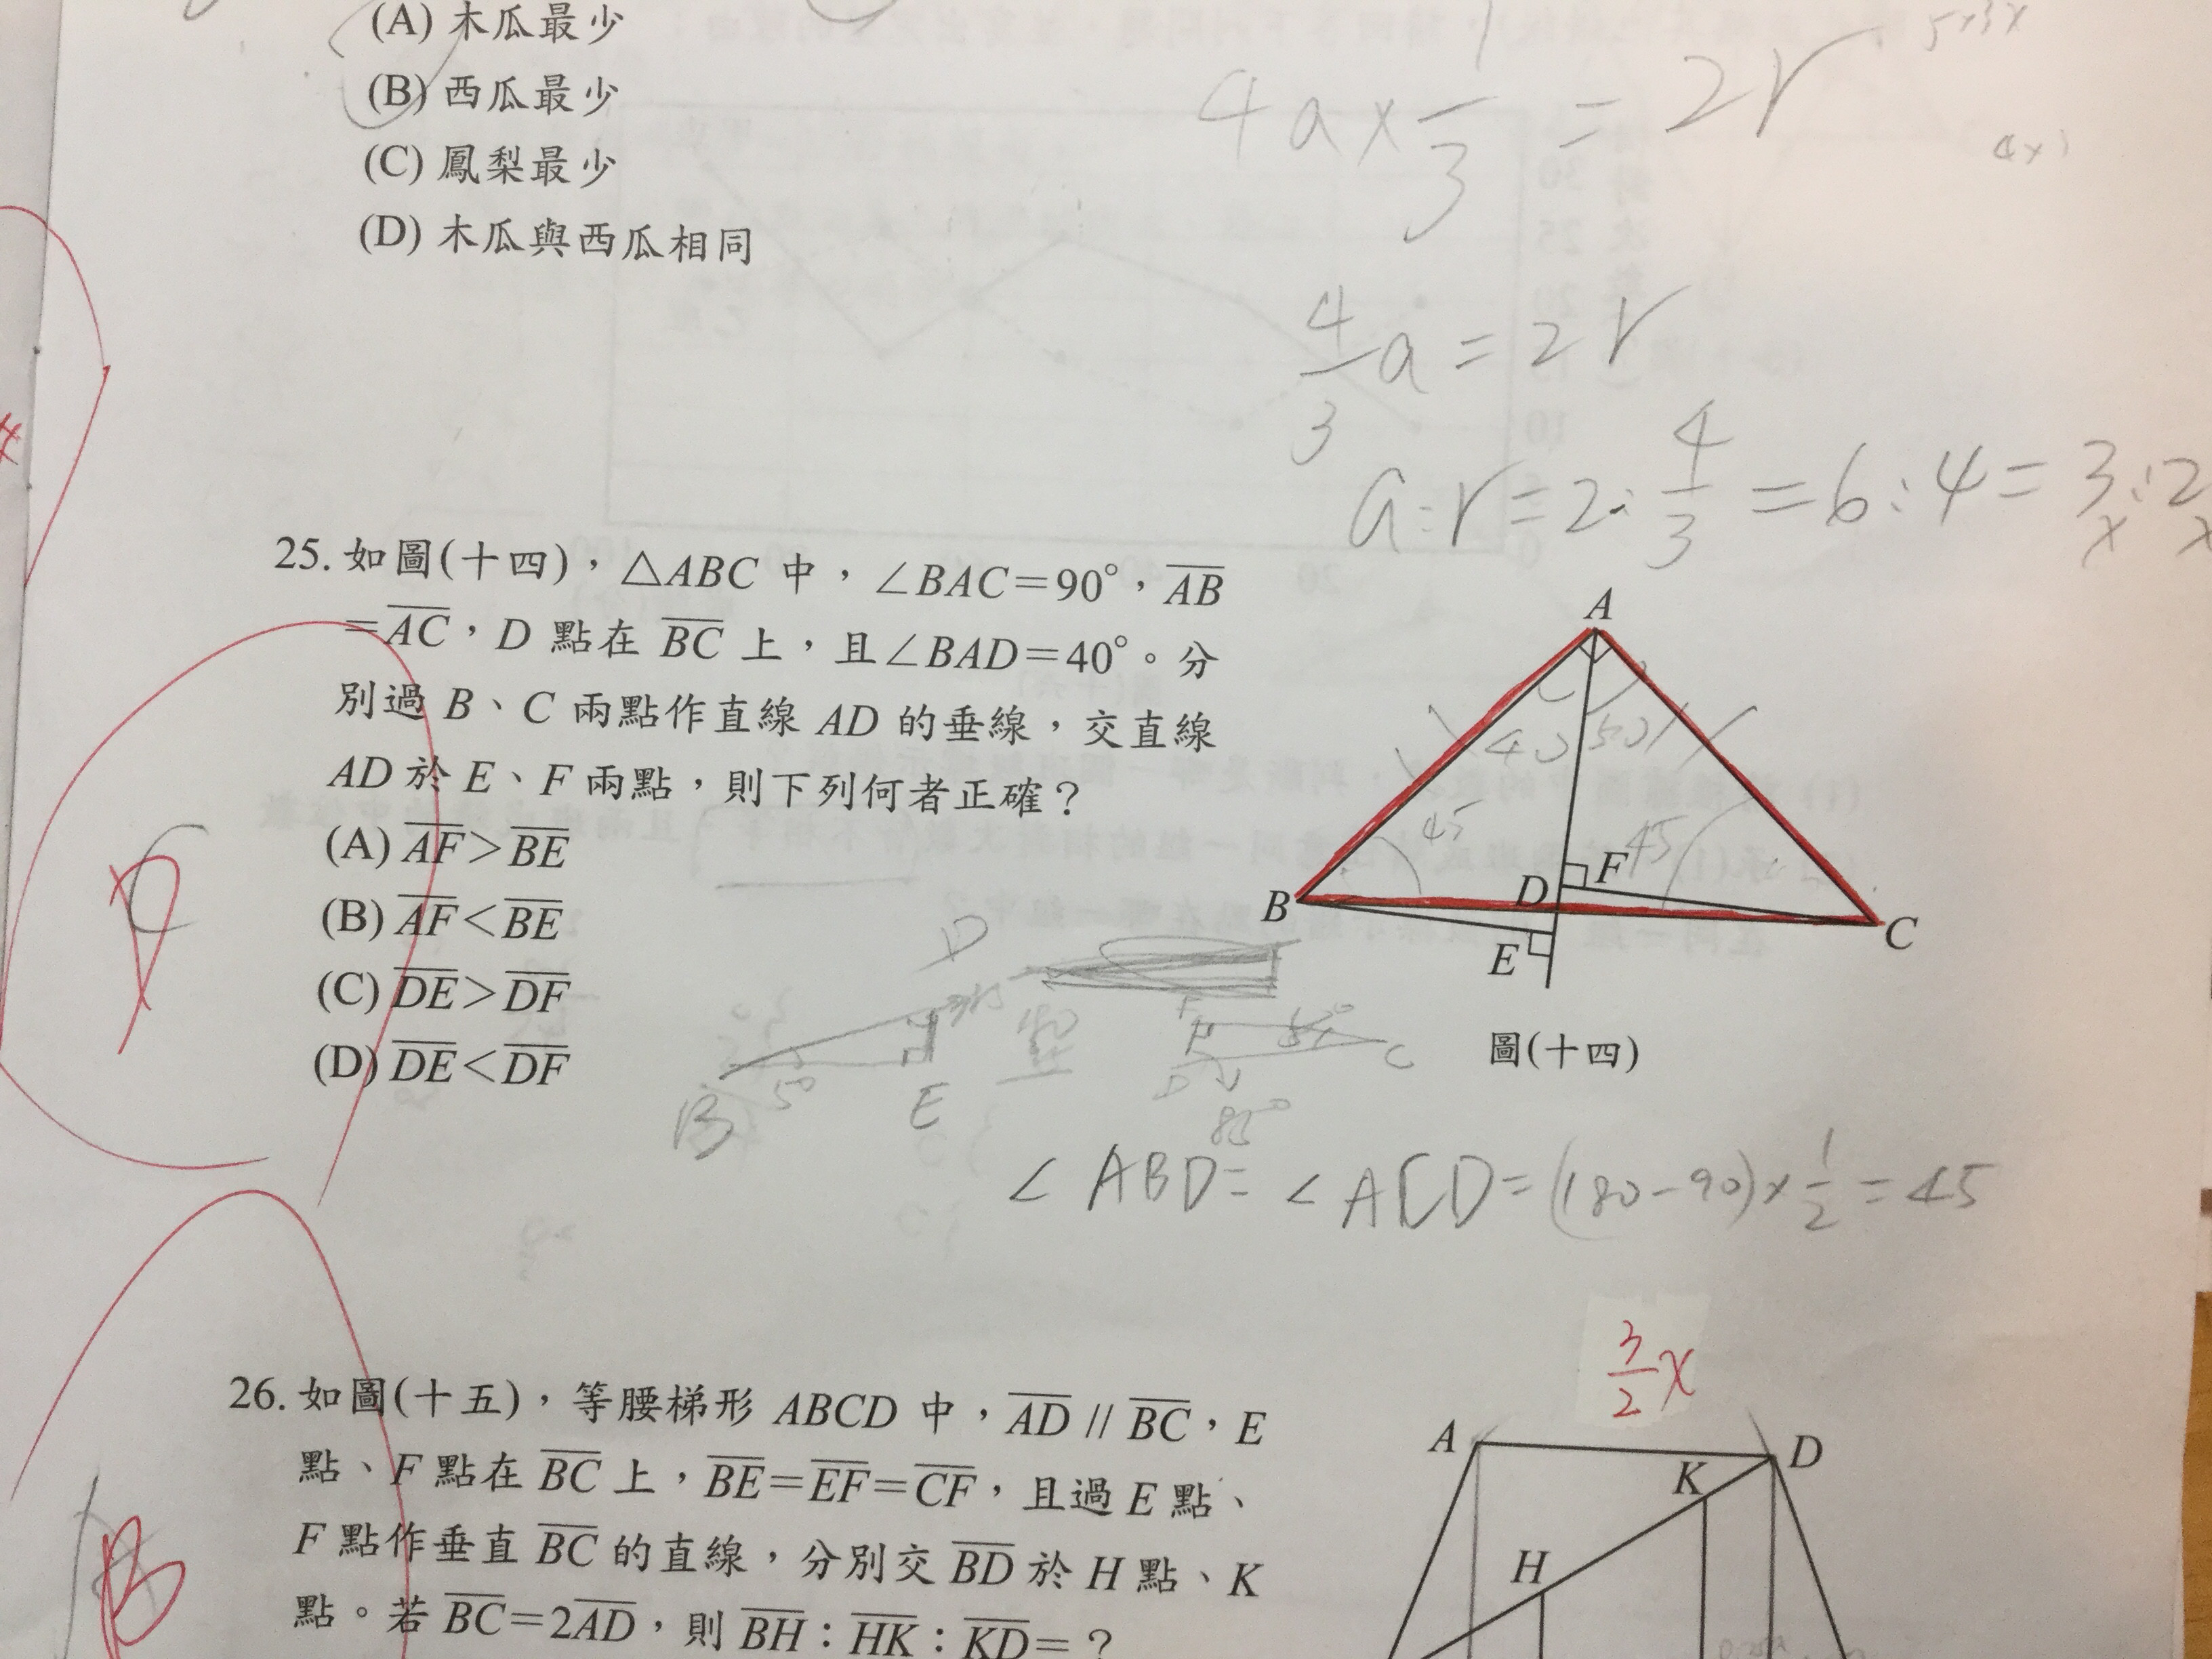 (A) 木瓜最少
(B) 西瓜最少
(C) 鳳梨最少
(D) 木瓜與西瓜相同
4a×1/3=2r
4/3a=2r
a:r=2:4/3=6:4=3:2
x x
25. 如圖(十四)，△ABC 中，∠BAC=90°，AB
=AC，D 點在 BC 上，且∠BAD=40°。分
別過 B、C 兩點作直線 AD 的垂線，交直線
AD 於 E、F 兩點，則下列何者正確？
(A) AF>BE
(B) AF<BE
(C) DE>DF
(D) DE<DF
C
D
A
40 50
45 45
B D F C
E
圖(十四)
D
B 5° E
F
D C
85°
∠ABD=∠ACD=(180-90)×1/2=45
26. 如圖(十五)，等腰梯形 ABCD 中，AD // BC，E
點、F 點在 BC 上，BE=EF=CF，且過 E 點、
F 點作垂直 BC 的直線，分別交 BD 於 H 點、K
點。若 BC=2AD，則 BH：HK：KD=？
B
3/2x
A D
K
H